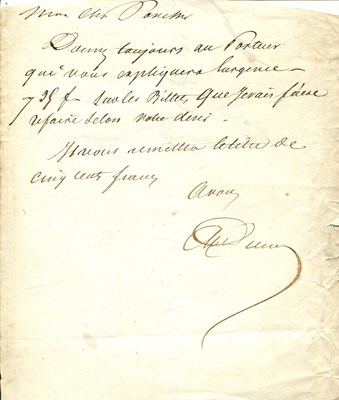 Mon cher Porcher
Donnez toujours au Porteur
qui vous expliquera l'urgence —
735 f sur les Billets que je vais faire
refaire selon votre désir.
Il vous remettra le titre de
cinq cent francs
A vous